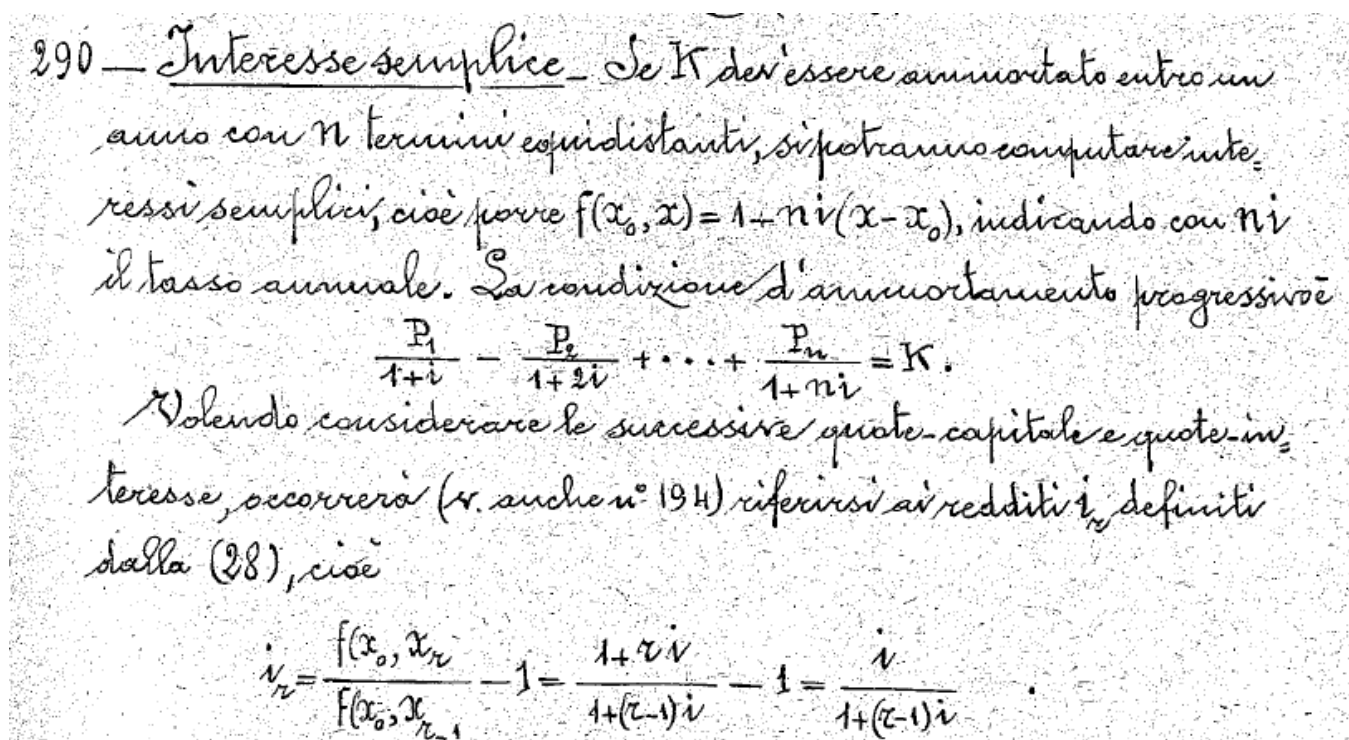 290 — Interesse semplice — Se K dev'essere ammortato entro un
anno con n termini equidistanti, si potranno computare inte=
ressi semplici, cioè porre f(x₀, x) = 1 + ni(x - x₀), indicando con ni
il tasso annuale. La condizione d'ammortamento progressivo è
P₁/(1+i) - P₂/(1+2i) + ··· + Pₙ/(1+ni) = K.
Volendo considerare le successive quote-capitale e quote-in=
teresse, occorrerà (v. anche n° 194) riferirsi ai redditi iᵣ definiti
dalla (28), cioè
iᵣ = f(x₀, xᵣ / f(x₀, xᵣ₋₁ - 1 = (1+ri)/(1+(r-1)i) - 1 = i/(1+(r-1)i) .